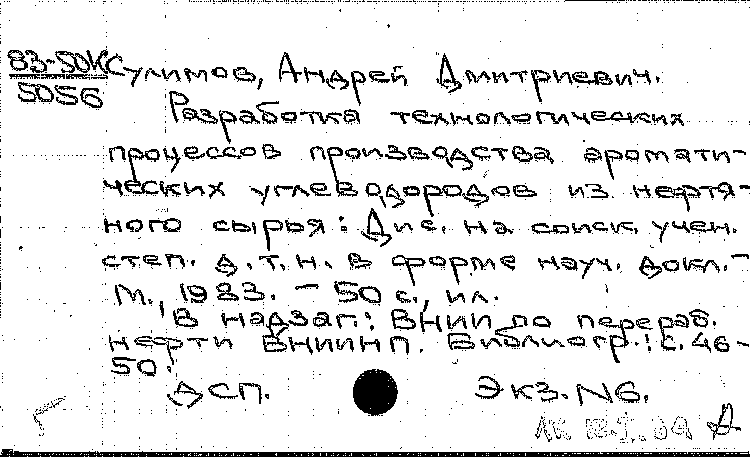 83-50К Сулимов, Андрей Дмитриевич.
5056
Разработка технологических
процессов производства аромати-
ческих углеводородов из нефтя-
ного сырья: Дис. на соиск. учен.
степ. д.т.н. в форме науч. докл. -
М., 1983. - 50 с., ил.
В надзаг.: ВНИИ по перераб.
нефти ВНИИНП. Библиогр.: с. 46-
50.
ДСП. Экз. N6.